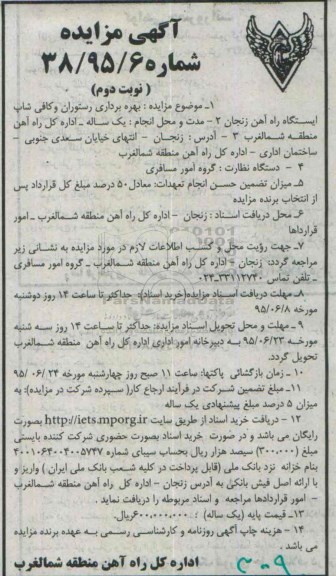 آگهی مزایده
شماره ۳۸/۹۵/۶
( نوبت دوم )
۱ـ موضوع مزایده : بهره برداری رستوران وکافی شاپ
ایستگاه راه آهن زنجان ۲ – مدت و محل انجام : یک ساله ـ اداره کل راه آهن
منطقه شمالغرب ۳ – آدرس : زنجان – انتهای خیابان سعدی جنوبی –
ساختمان اداری – اداره کل راه آهن منطقه شمالغرب
۴ – دستگاه نظارت : گروه امور مسافری
۵ـ میزان تضمین حسن انجام تعهدات: معادل ۵۰ درصد مبلغ کل قرارداد پس
از انتخاب برنده مزایده
۶ـ محل دریافت اسناد : زنجان – اداره کل راه آهن منطقه شمالغرب ـ امور
قراردادها
۷ـ جهت رؤیت محل و کسب اطلاعات لازم در مورد مزایده به نشانی زیر
مراجعه گردد: زنجان – اداره کل راه آهن منطقه شمالغرب ـ گروه امور مسافری
ـ تلفن تماس ۳۳۱۱۲۷۴۰-۰۲۴
۸ـ مهلت دریافت اسناد مزایده(خرید اسناد): حداکثر تا ساعت ۱۴ روز دوشنبه
مورخه ۹۵/۰۶/۸
۹ـ مهلت و محل تحویل اسناد مزایده: حداکثر تا ساعت ۱۴ روز سه شنبه
مورخه ۹۵/۰۶/۲۳ به دبیرخانه امور اداری اداره کل راه آهن منطقه شمالغرب
تحویل گردد.
۱۰ـ زمان بازگشائی پاکتها: ساعت ۱۱ صبح روز چهارشنبه مورخه ۹۵/۰۶/۲۴
۱۱ـ مبلغ تضمین شرکت در فرآیند ارجاع کار( سپرده شرکت در مزایده): به
میزان ۵ درصد مبلغ پیشنهادی یک ساله
۱۲ – دریافت خرید اسناد از طریق سایت http://iets.mporg.ir بصورت
رایگان می باشد و در صورت خرید اسناد بصورت حضوری شرکت کننده بایستی
مبلغ (۳۰۰,۰۰۰) سیصد هزار ریال بحساب سیبای شماره ۴۰۰۱۰۶۴۰۰۴۰۰۵۷۴۷
بنام خزانه نزد بانک ملی (قابل پرداخت در کلیه شعب بانک ملی ایران ) واریز و
با ارائه اصل فیش بانکی به آدرس زنجان – اداره کل راه آهن منطقه شمالغرب
– امور قراردادها مراجعه و اسناد مربوطه را دریافت نماید .
۱۳ـ قیمت پایه (یک ساله) : ۶۰۰,۰۰۰,۰۰۰ریال.
۱۴ : هزینه چاپ آگهی روزنامه و کارشناسی رسمی به عهده برنده مزایده
می باشد .
اداره کل راه آهن منطقه شمالغرب